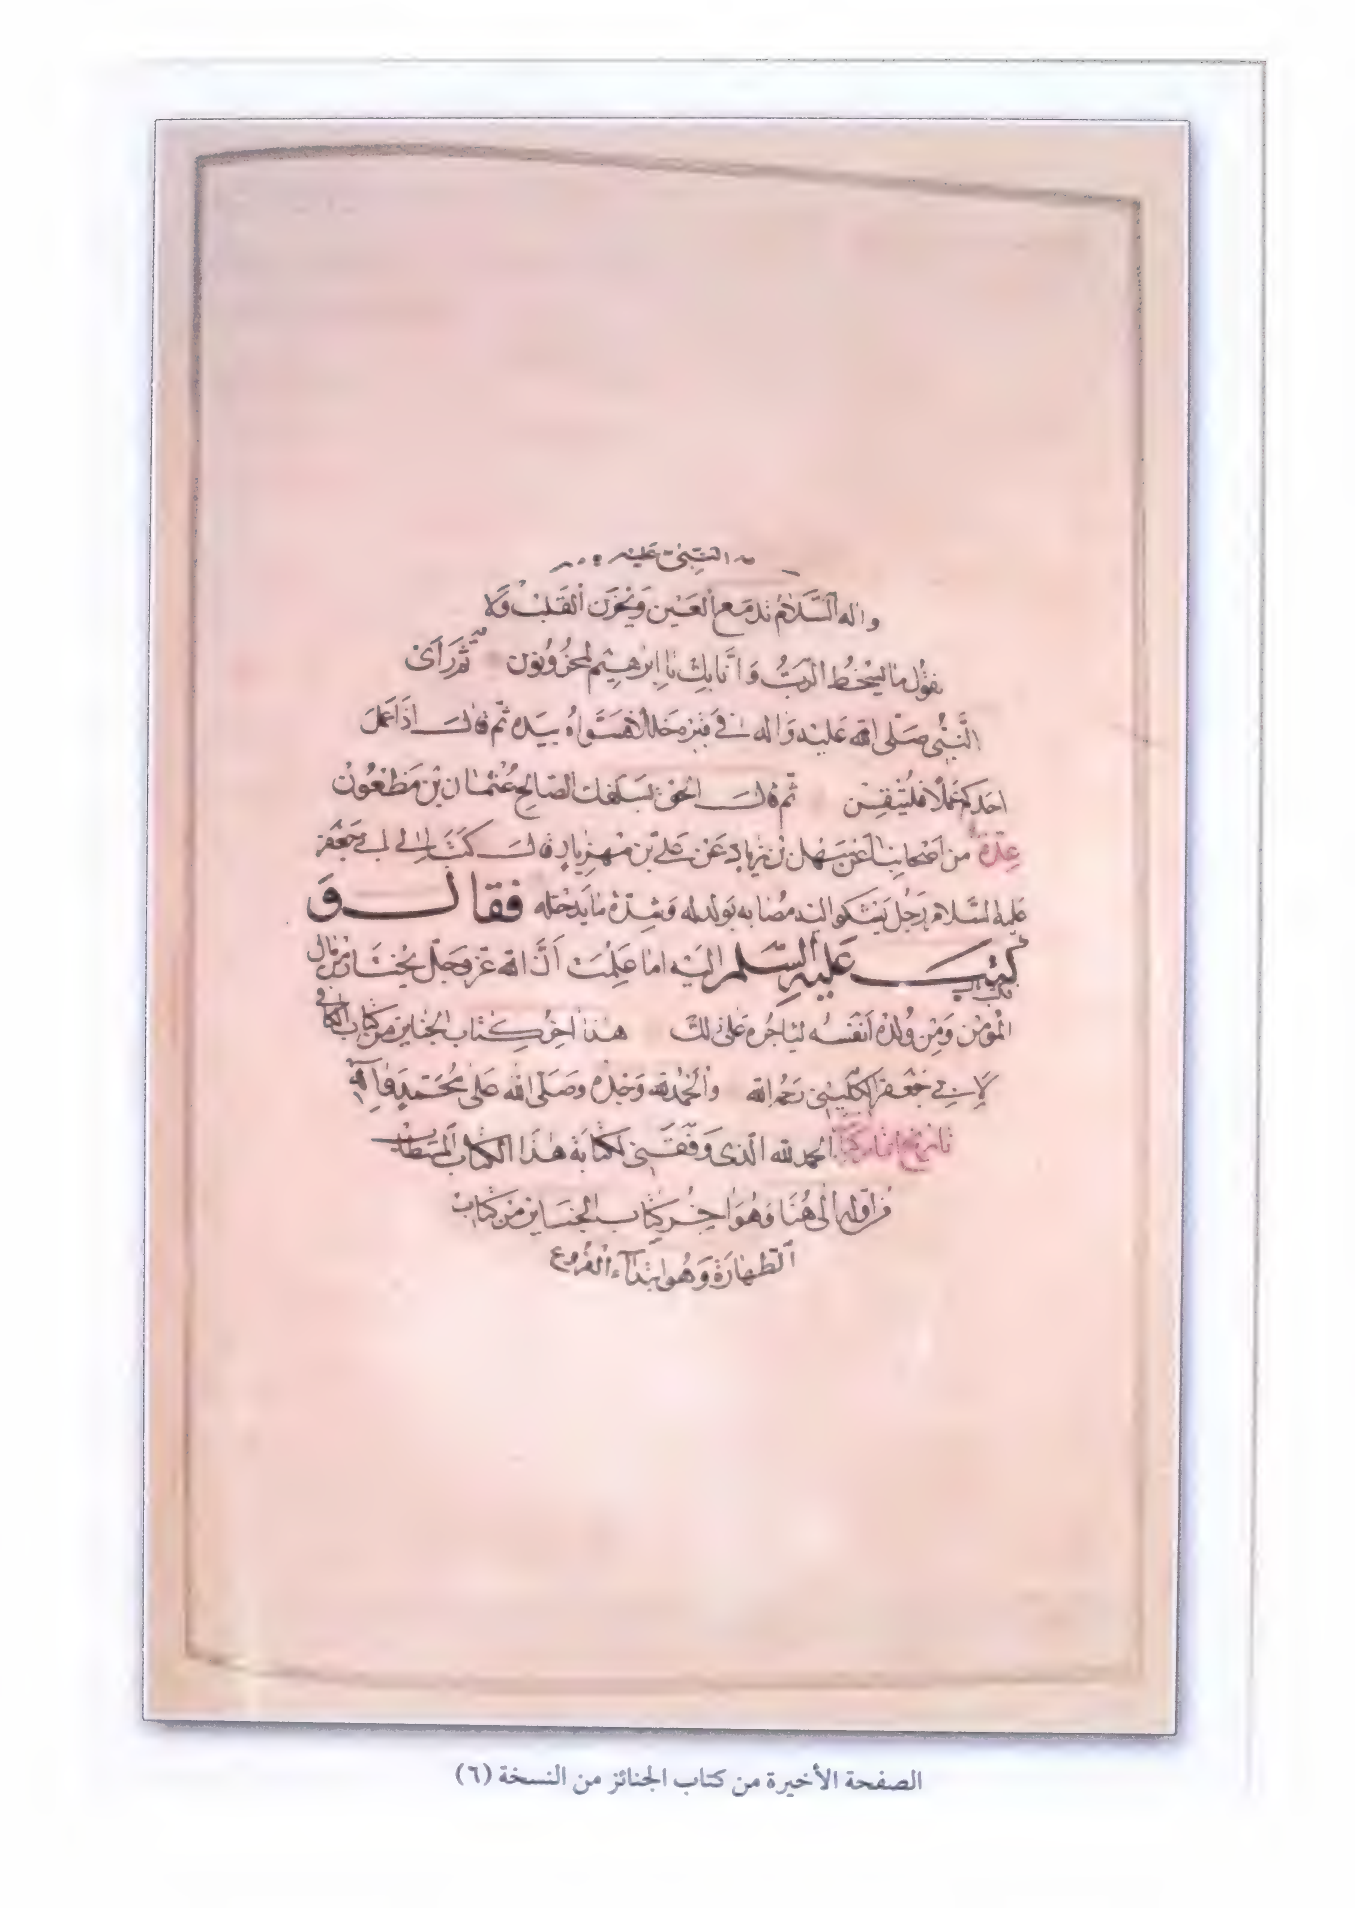 النبي عليه
واله السَّلامُ تدمَع العَين وَيَحْزَن القَلبْ وَلا
يقول ما يُسخِطُ الرَّبُّ وَانَّا بِك يا ابرهيم لمحزُونون ثم رَأىَ
النَّبيُّ صَلّى الله عَليه وَاله في قبره خللا فسَوَّاهُ بيَده ثم قال اذَا عَملَ
احَدكم عَملًا فليُتقِن ثم قال الحق بسَلفك الصَّالح عُثمان بن مَظعُونْ
عِدّة من اَصحابنا عَن سَهل بن زيادٍ عَن عَلى بن مهزيار قال كتَبَ الى ابي جَعفر
عَليه السَّلام رَجل يَشكو اليه مُصابه بوَلدله وَشدّة ما يَدخله فقال وَ
كتب عَليهِ السّلم اليَه اما عَلِمْتَ اَنَّ الله عَزّ وَجَلّ يختار من مال
المؤمن وَمِن وُلدِه اَنفَسه ليَاجُره عَلى ذلك هذا اخر كتاب الجنايز من كتاب الكافي
لابي جَعفر الكلينى رَحمه الله وَالحَمد لله وَحْدَه وَصَلّى الله عَلى محَمّدٍ وَآله
الحمد لله الّذى وَفّقَنى لكتابَة هذا الكتاب المستطاب
من اوّله الى هُنَا وَهُوَ اخر كتاب الجنايز من كتاب
الطّهارَة وَهُو ابتدآء الفروع
الصفحة الأخيرة من كتاب الجنائز من النسخة (٦)